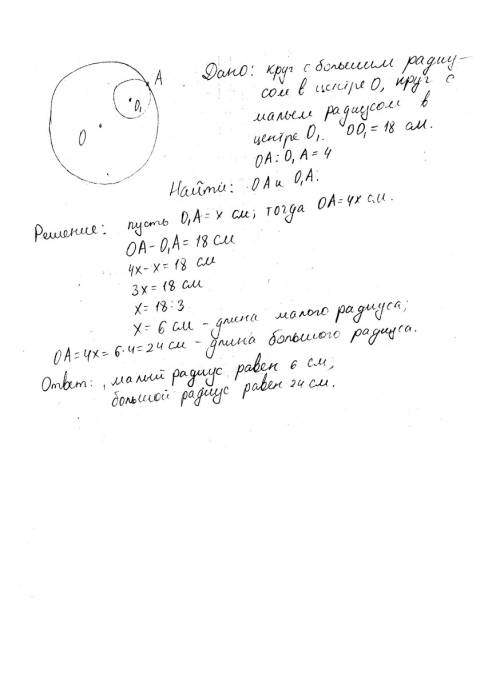 A
O₁
O
Дано: круг с большим радиу-
сом в центре O, круг с
малым радиусом в
центре O₁. OO₁ = 18 см.
OA : O₁A = 4
Найти: OA и O₁A.
Решение: пусть O₁A = x см; тогда OA = 4x см.
OA - O₁A = 18 см
4x - x = 18 см
3x = 18 см
x = 18 : 3
x = 6 см - длина малого радиуса;
OA = 4x = 6·4 = 24 см - длина большого радиуса.
Ответ: малый радиус равен 6 см;
большой радиус равен 24 см.